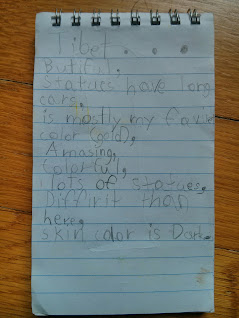 Tibet . . .
Butiful,
statues have long
ears,
is mostly my favrit
color (gold),
Amasing,
Colorful,
lots of statues,
Diffirit than
here,
skin color is Dark.